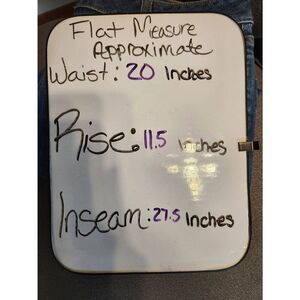 Flat Measure
Approximate
Waist: 20 Inches
Rise: 11.5 Inches
Inseam: 27.5 Inches